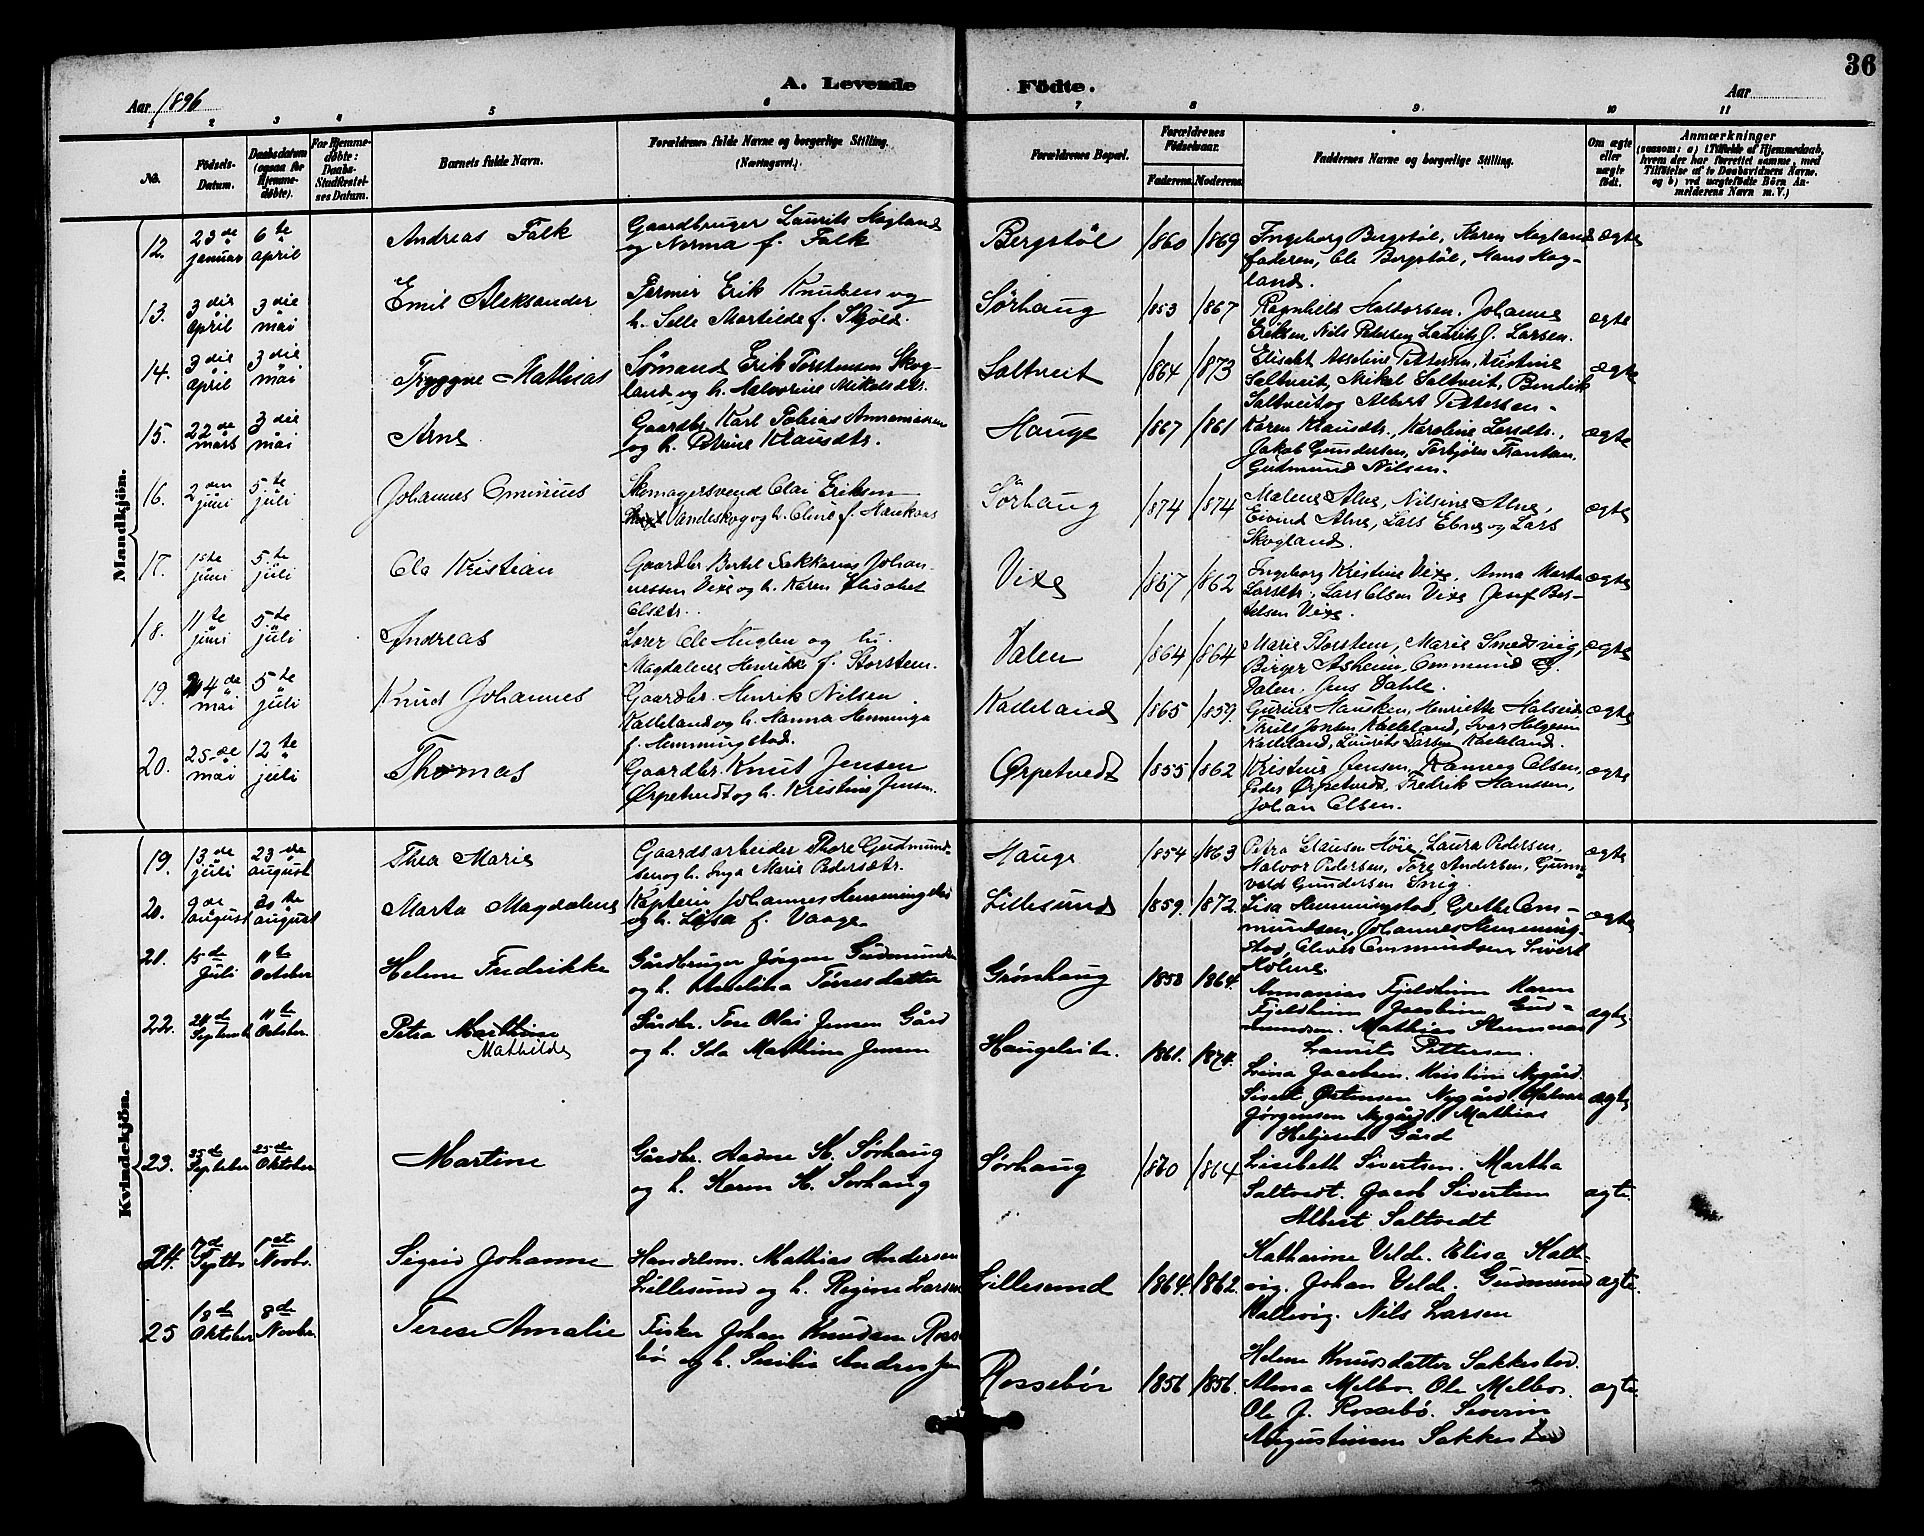 36
A. Levende Födte.
Aar 1896
Aar
1 2 3 4 5 6 7 8 9 10 11
No.
Födsels-
Datum.
Daabsdatum
(ogsaa for
Hjemme-
døbte).
For Hjemme-
døbte:
Daabs-
Stadfæstel-
ses Datum.
Barnets fulde Navn.
Forældrenes fulde Navne og borgerlige Stilling.
(Næringsvei.)
Forældrenes Bopæl.
Forældrenes
Fødselsaar.
Faderens. Moderens.
Faddernes Navne og borgerlige Stilling.
Om ægte
eller
uægte
født.
Anmærkninger
(saasom: a) i Tilfælde af Hjemmedaab,
hvem der har forrettet samme, med
Tilføielse af to Daabsvidners Navne,
og b) ved uægtefødte Börn An-
melderens Navn m. V.)
Mandkjön.
12. 23de januar 6te april Andreas Falk
Gaardbruger Laurits Hogland
og Norma f. Falk
Bergstøl 1860 1869
Ingeborg Bergstøl, Karen Hogland
faderen, Ole Bergstøl, Hans Hog-
land.
ægte
13. 3die april 3die mai Emil Aleksander
Farmer Erik Knudsen og
h. Selle Martilde f. Skjold.
Sørhaug 1853 1867
Ragnhild Halvorsen, Johanne
Eriksen, Nils Petersen, Laurits J. Larsen.
ægte
14. 3die april 3die mai Tryggve Mathias
Sømand Erik Torstensen Skog-
land og h. Halvorine Mikalsdtr.
Saltveit 1864 1873
Elisabt Asseline Pettersen, Kristine
Saltveit, Mikal Saltveit, Bendik
Saltveit og Albert Pettersen
ægte
15. 22de marts 3die mai Arne
Gaardbr. Karl Tobias Annaniasen
og h. Petrine Klausdtr.
Hauge 1867 1861
Karen Klausdtr., Karoline Larsdtr.,
Jakob Gundersen, Torbjørn Frantsen
Gudmund Nilsen.
ægte
16. 2den juni 5te juli Johannes Ominius
Skomagersvend Olai Eriksen
Vandeskog og h. Oline f. Haukaas
Sørhaug 1874 1874
Malene Alne, Nilsine Alne,
Eivind Alne, Lars Ebne og Lars
Skogland.
ægte
17. 1ste juni 5te juli Ole Kristian
Gaardbr Bertel Sakkarias Johan-
nessen Vixe og h. Karen Elisabet
Olsdtr.
Vixe 1857 1862
Ingeborg Kristine Vixe, Anna Marta
Larsdtr., Lars Olsen Vixe Josef Ber-
telsen Vixe
ægte
18. 11te juni 5te juli Andreas
Lærer Ole Huglen og hu.
Magdalene Henrikke f. Storsteen.
Valen 1864 1864
Marie Storsteen, Marie Smedsvig,
Birger Asheim, Ommund
Valen, Jens Dahle.
ægte
19. 4de mai 5te juli Knud Johannes
Gaardbr. Henrik Nilsen
Kalleland og h. Hanna Henninga
f. Hemmingstad.
Kalleland 1865 1859
Gurine Hausken, Henriette Halseid,
Truls Jonsen Kalleland, Iver Helgesen
Kalleland, Laurits Larsen Kalleland.
ægte
20. 25de mai 12te juli Thomas
Gaardbr. Knut Jensen
Ørpetvedt og h. Kristine Jensen
Ørpetvedt 1855 1862
Kristine Jensen, Rameg Olsen,
Peder Ørpetvedt, Fredrik Hansen,
Johan Olsen.
ægte
Kvindekjön.
19. 13de juli 23de august Thea Marie
Gaardsarbeider Thore Gudmund-
sen og h. Inga Marie Pedersdtr.
Hauge 1854 1863
Petra Clausen Høie, Laura Pedersen,
Halvor Pedersen, Tore Andersen, Gunn-
vald Gundersen Snig.
ægte
20. 9de august 30te august Marta Magdalene
Kaptein Johannes Hemmingstad
og h. Lisa f. Vaage
Lillesund 1859. 1872.
Lisa Hemmingstad, Grethe Om-
mundsen, Johannes Hemming-
stad, Oliver Ommundsen, Sivert
Holme.
ægte
21. 15de Juli 11te October Helene Fredrikke
Gårdbruger Jørgen Gudmundsen
og h. Amelina Tørresdatter
Grønhaug 1858 1864.
Annanias Fjeldheim Karen
Fjeldheim Jacobine Gud-
mundsen. Mathias Steensnæs
Laurits Pettersen.
ægte
22. 20de Septemb 11te October Petra Marthine Mathilde
Gårdbr. Tore Olai Jensen Gård
og h. Ida Marthine Jensen
Haugeleite. 1861. 1874.
Lina Jacobsen. Kristine Nygård.
Sivert Østensen Nygård Halvor
Jørgensen Nygård. Mathias
Heljesen Gård
ægte
23. 25de September 25de Oktober Martine
Gårdbr. Aadne K. Sørhaug
og h. Karen K. Sørhaug
Sørhaug 1860 1864
Lisebeth Sivertsen. Martha
Saltvedt. Jacob Sivertsen
Albert Saltvedt
ægte.
24. 7de Septbr. 1ste Novbr. Sigrid Johanne
Handelsm. Mathias Andersen
Lillesund og h. Regine Larsen
Lillesund 1864. 1862.
Katharine Velde. Elisa Kalle-
vig. Johan Velde. Gudmund
Kallevig. Nils Larsen
ægte.
25 18de Oktober 8de Novbr. Terese Amalie
Fisker Johan Knudsen Rosse-
bø og h. Serilia Andreasen
Rossebø 1856 1856.
Helene Knudsdatter Sakkestad.
Alma Melbo. Ole Melbo.
Ole J. Rossebø. Severin
Augustinsen Sakkestad
ægte.